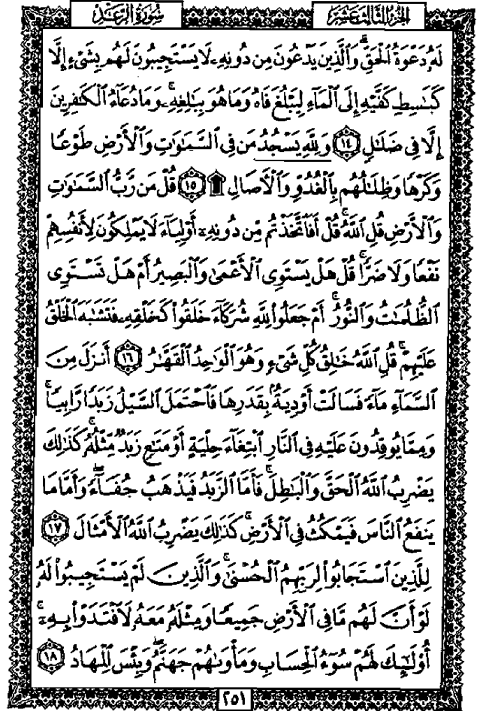 الجزء الثالث عشر
سورة الرعد
لَهُۥ دَعْوَةُ ٱلْحَقِّ ۖ وَٱلَّذِينَ يَدْعُونَ مِن دُونِهِۦ لَا يَسْتَجِيبُونَ لَهُم بِشَىْءٍ إِلَّا
كَبَٰسِطِ كَفَّيْهِ إِلَى ٱلْمَآءِ لِيَبْلُغَ فَاهُ وَمَا هُوَ بِبَٰلِغِهِۦ ۚ وَمَا دُعَآءُ ٱلْكَٰفِرِينَ
إِلَّا فِى ضَلَٰلٍ ﴿١٤﴾ وَلِلَّهِ يَسْجُدُ مَن فِى ٱلسَّمَٰوَٰتِ وَٱلْأَرْضِ طَوْعًا
وَكَرْهًا وَظِلَٰلُهُم بِٱلْغُدُوِّ وَٱلْءَاصَالِ ۩ ﴿١٥﴾ قُلْ مَن رَّبُّ ٱلسَّمَٰوَٰتِ
وَٱلْأَرْضِ قُلِ ٱللَّهُ ۚ قُلْ أَفَٱتَّخَذْتُم مِّن دُونِهِۦٓ أَوْلِيَآءَ لَا يَمْلِكُونَ لِأَنفُسِهِمْ
نَفْعًا وَلَا ضَرًّا ۚ قُلْ هَلْ يَسْتَوِى ٱلْأَعْمَىٰ وَٱلْبَصِيرُ أَمْ هَلْ تَسْتَوِى
ٱلظُّلُمَٰتُ وَٱلنُّورُ ۗ أَمْ جَعَلُوا۟ لِلَّهِ شُرَكَآءَ خَلَقُوا۟ كَخَلْقِهِۦ فَتَشَٰبَهَ ٱلْخَلْقُ
عَلَيْهِمْ ۚ قُلِ ٱللَّهُ خَٰلِقُ كُلِّ شَىْءٍ وَهُوَ ٱلْوَٰحِدُ ٱلْقَهَّٰرُ ﴿١٦﴾ أَنزَلَ مِنَ
ٱلسَّمَآءِ مَآءً فَسَالَتْ أَوْدِيَةٌۢ بِقَدَرِهَا فَٱحْتَمَلَ ٱلسَّيْلُ زَبَدًا رَّابِيًا ۚ
وَمِمَّا يُوقِدُونَ عَلَيْهِ فِى ٱلنَّارِ ٱبْتِغَآءَ حِلْيَةٍ أَوْ مَتَٰعٍ زَبَدٌ مِّثْلُهُۥ ۚ كَذَٰلِكَ
يَضْرِبُ ٱللَّهُ ٱلْحَقَّ وَٱلْبَٰطِلَ ۚ فَأَمَّا ٱلزَّبَدُ فَيَذْهَبُ جُفَآءً ۖ وَأَمَّا مَا
يَنفَعُ ٱلنَّاسَ فَيَمْكُثُ فِى ٱلْأَرْضِ ۚ كَذَٰلِكَ يَضْرِبُ ٱللَّهُ ٱلْأَمْثَالَ ﴿١٧﴾
لِلَّذِينَ ٱسْتَجَابُوا۟ لِرَبِّهِمُ ٱلْحُسْنَىٰ ۚ وَٱلَّذِينَ لَمْ يَسْتَجِيبُوا۟ لَهُۥ
لَوْ أَنَّ لَهُم مَّا فِى ٱلْأَرْضِ جَمِيعًا وَمِثْلَهُۥ مَعَهُۥ لَٱفْتَدَوْا۟ بِهِۦٓ ۚ
أُو۟لَٰٓئِكَ لَهُمْ سُوٓءُ ٱلْحِسَابِ وَمَأْوَىٰهُمْ جَهَنَّمُ ۖ وَبِئْسَ ٱلْمِهَادُ ﴿١٨﴾
٢٥١